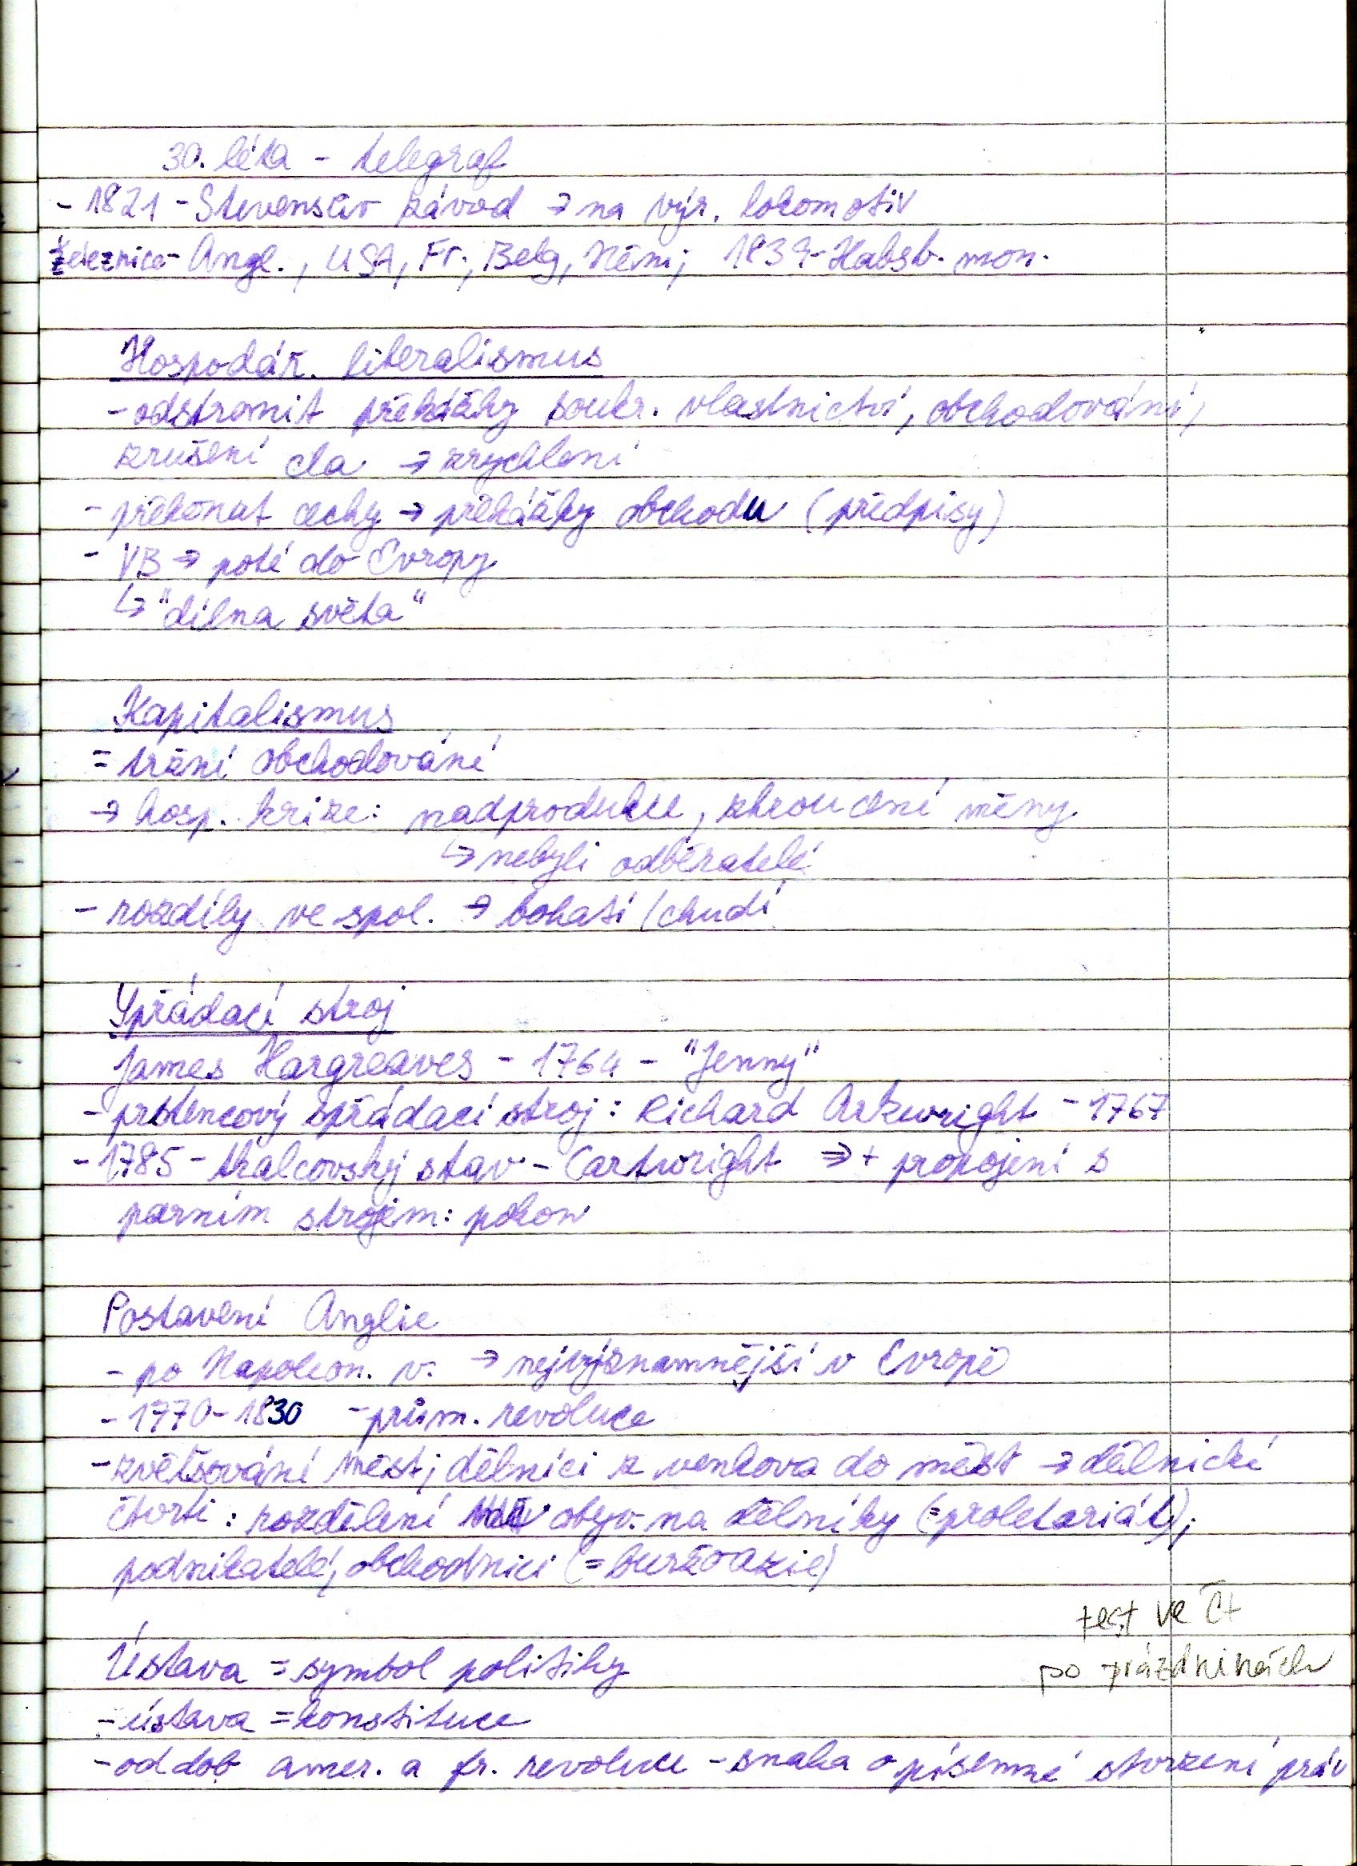 30. léta - telegraf
- 1821 - Stevensův závod → na výr. lokomotiv
železnice - Angl., USA, Fr., Belg, Něm; 1839 - Habsb. mon.
Hospodář. liberalismus
- odstranit překážky soukr. vlastnictví, obchodování,
zrušení cla → zrychlení
- překonat cechy → překážky obchodu (předpisy)
- VB → poté do Evropy
↳ "dílna světa"
Kapitalismus
= tržní obchodování
→ hosp. krize: nadprodukce, zhroucení měny
↳ nebyli odběratelé
- rozdíly ve spol. → bohatí/chudí
Spřádací stroj
James Hargreaves - 1764 - "Jenny"
- prstencový spřádací stroj: Richard Arkwright - 1767
- 1785 - tkalcovský stav - Cartwright ⇒ + propojení s
parním strojem: pokou
Postavení Anglie
- po Napoleon. v. → nejvýznamnější v Evropě
- 1770-1830 - prům. revoluce
- zvětšování měst; dělníci z venkova do měst → dělnické
čtvrti: rozdělení obyv. na dělníky (=proletariát);
podnikatelé, obchodníci (= buržoazie)
test ve čt
po prázdninách
Ústava = symbol politiky
- ústava = konstituce
- od dob amer. a fr. revoluce - snaha o písemné stvrzení práv